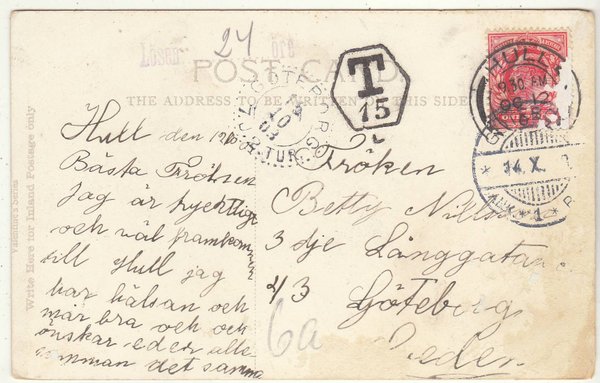 Lösen 24 öre
POST CARD
THE ADDRESS TO BE WRITTEN ON THIS SIDE
T
15
HULL
9.30 AM
OC 12
GÖTEBORG
LBR. TUR
14. X.
* 1 *
Valentine's Series
Write Here for Inland Postage only
Hull den 12
Bästa Fröken
Jag är
och väl framkom
till Hull jag
har hälsan och
mår bra och och
önskar eder alle
samman det samma
Fröken
Betty Nilsson
3 dje Långgatan
43
Göteborg
Sveden
6a